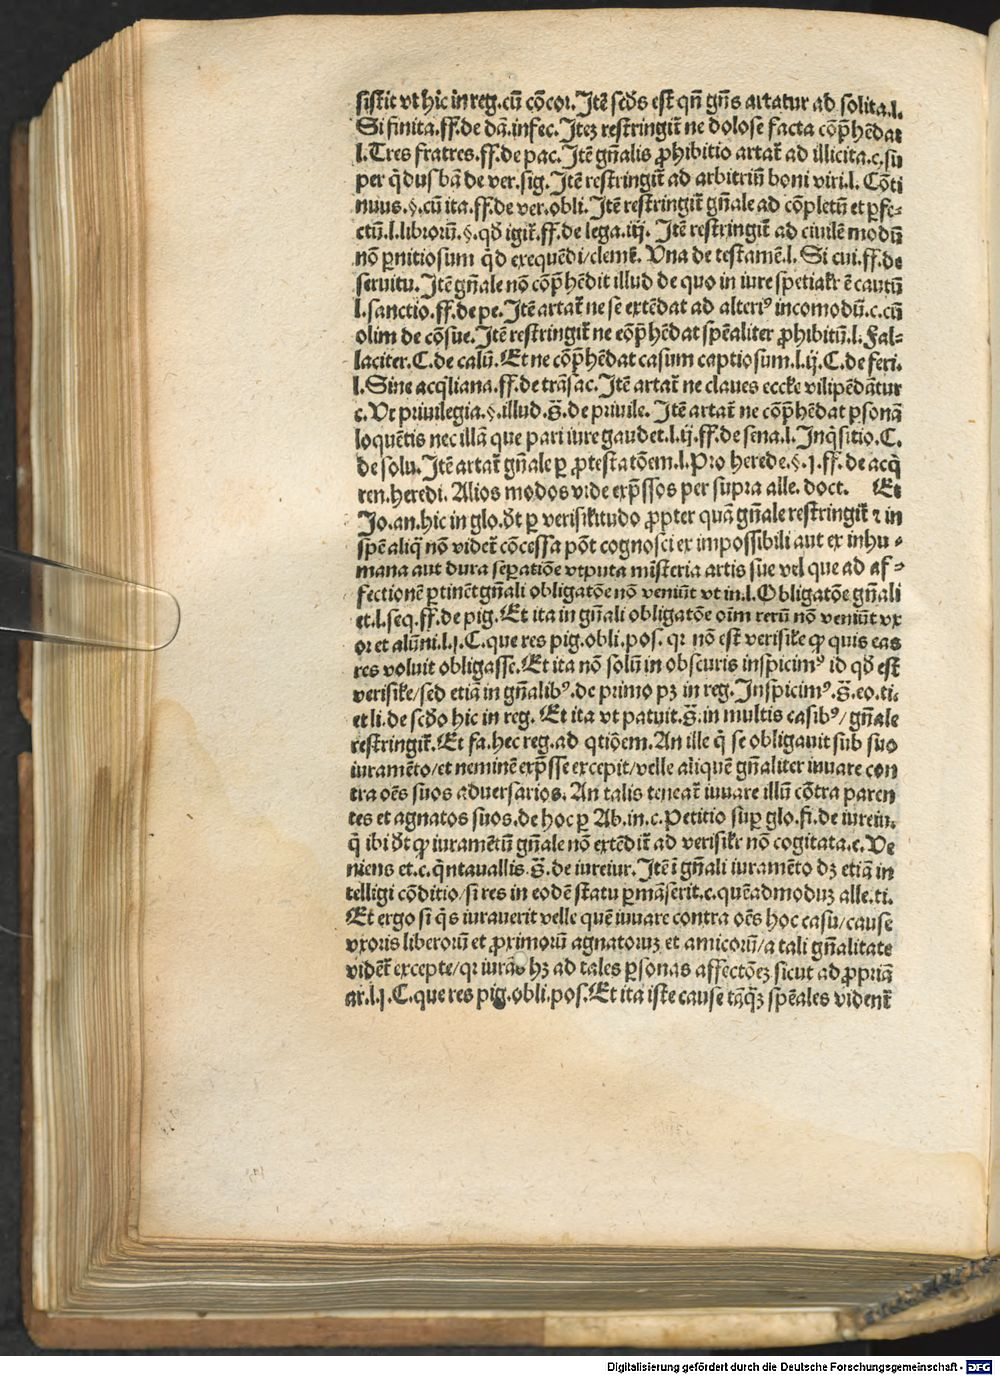 sistit vt hic in reg. cū cōcor. Itē sed̄s est qn̄ gn̄s artatur ad solita. l.
Si finita. ff. de dā. infec. Itez restringit̄ ne dolose facta cōp̄hēdat
l. Tres fratres. ff. de pac. Itē gn̄alis ꝓhibitio artat̄ ad illicita. c. su
per q̄ dusbā de ver. sig. Itē restringit̄ ad arbitriū boni viri. l. Cōti
nuus. §. cū ita. ff. de ver. obli. Itē restringit̄ gn̄ale ad cōpletū et ꝑfe⸗
ctū. l. librorū. §. qd̄ igit̄. ff. de lega. iij. Itē restringit̄ ad ciuilē modū
nō ꝑnitiosum q̄d exequēdi/clemē. Vna de testamē. l. Si cui. ff. de
seruitu. Itē gn̄ale nō cōp̄hēdit illud de quo in iure spetialr̄ ē cautū
l. sanctio. ff. de pe. Itē artat̄ ne se extēdat ad alteriꝰ incomodū. c. cū
olim de cōsue. Itē restringit̄ ne cōp̄hēdat spēaliter ꝓhibitū. l. Fal⸗
laciter. C. de calū. Et ne cōp̄hēdat casum captiosum. l. ij. C. de feri.
l. Sine acq̄liana. ff. de trāsac. Itē artat̄ ne claues eccl̄e vilipēdātur
c. Vt priuilegia. §. illud. s̄. de priuile. Itē artat̄ ne cōp̄hēdat ꝑsonā
loquētis nec illā que pari iure gaudet. l. ij. ff. de sena. l. Inq̄sitio. C.
de solu. Itē artat̄ gn̄ale ꝑ ꝓtestatōem. l. Pro herede. §. j. ff. de acq̄
ren. heredi. Alios modos vide exp̄ssos per supra alle. doct. Et
Jo. an. hic in glo. d̄t ꝑ verisil̄itudo ꝓpter quā gn̄ale restringit̄ ⁊ in
spēaliq̄ nō videt̄ cōcessa pōt cognosci ex impossibili aut ex inhu⸗
mana aut dura seꝑatiōe vtputa misteria artis sue vel que ad af⸗
fectionē ꝑtinēt gn̄ali obligatōe nō veniūt vt in. l. Obligatōe gn̄ali
et. l. seq. ff. de pig. Et ita in gn̄ali obligatōe oīm rerū nō veniūt vx
or et alūni. l. j. C. que res pig. obli. pos. qr nō est verisil̄e ꝙ quis eas
res voluit obligasse. Et ita nō solū in obscuris inspicimꝰ id qd̄ est
verisil̄e/sed etiā in gn̄alibꝰ. de primo pꝫ in reg. Inspicimꝰ. s̄. eo. ti.
et li. de sed̄o hic in reg. Et ita vt patuit. s̄. in multis casibꝰ/gn̄ale
restringit̄. Et fa. hec reg. ad qtiōem. An ille q̄ se obligauit sub suo
iuramēto/et neminē exp̄sse excepit/velle aliquē gn̄aliter iuuare con
tra oēs suos aduersarios. An talis teneat̄ iuuare illū cōtra paren
tes et agnatos suos. de hoc ꝑ Ab. in. c. Petitio suꝑ glo. fi. de iureiu.
q̄ ibi d̄t ꝙ iuramētū gn̄ale nō extēdit̄ ad verisil̄r nō cogitata. c. Ve
niens et. c. q̄ntauallis. s̄. de iureiur. Itē ī gn̄ali iuramēto dꝫ etiā in
telligi cōditio/si res in eodē statu ꝑmāserit. c. quēadmoduꝫ alle. ti.
Et ergo si q̄s iurauerit velle quē iuuare contra oēs hoc casu/cause
vxoris liberorū et ꝓximorū agnatoruꝫ et amicorū/a tali gn̄alitate
vidēt̄ excepte/qr iurās hꝫ ad tales ꝑsonas affectōeꝫ sicut ad ꝓpriā
ar. l. j. C. que res pig. obli. pos. Et ita iste cause tāq̄ꝫ spēales vident̄
Digitalisierung gefördert durch die Deutsche Forschungsgemeinschaft - DFG